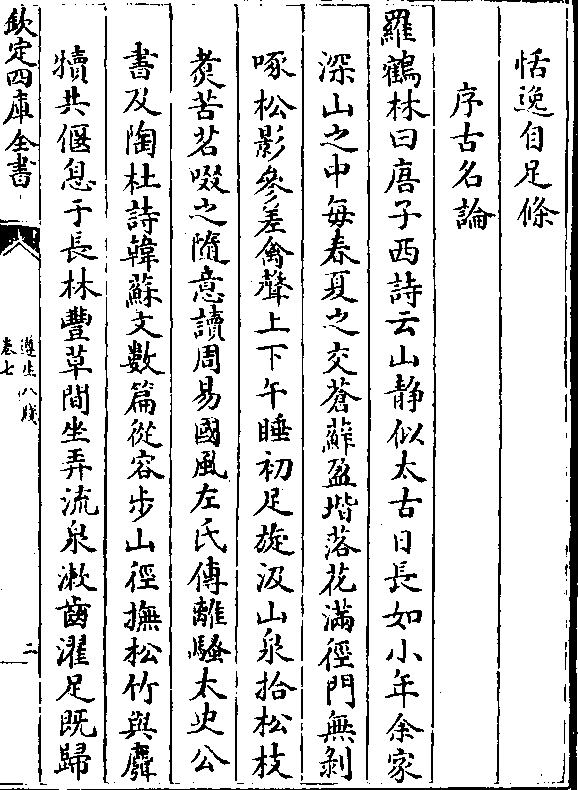 恬逸自足條
序古名論
羅鶴林曰唐子西詩云山静似太古日長如小年余家
深山之中每春夏之交蒼蘚盈堦落花滿徑門無剥
啄松影參差禽聲上下午睡初足旋汲山泉拾松枝
煑苦茗啜之隨意讀周易國風左氏傳離騷太史公
書及陶杜詩韓蘇文數篇從容步山徑撫松竹與麛
犢共偃息于長林豐草間坐弄流泉漱齒濯足既歸
欽定四庫全書
遵生八牋
卷七
二